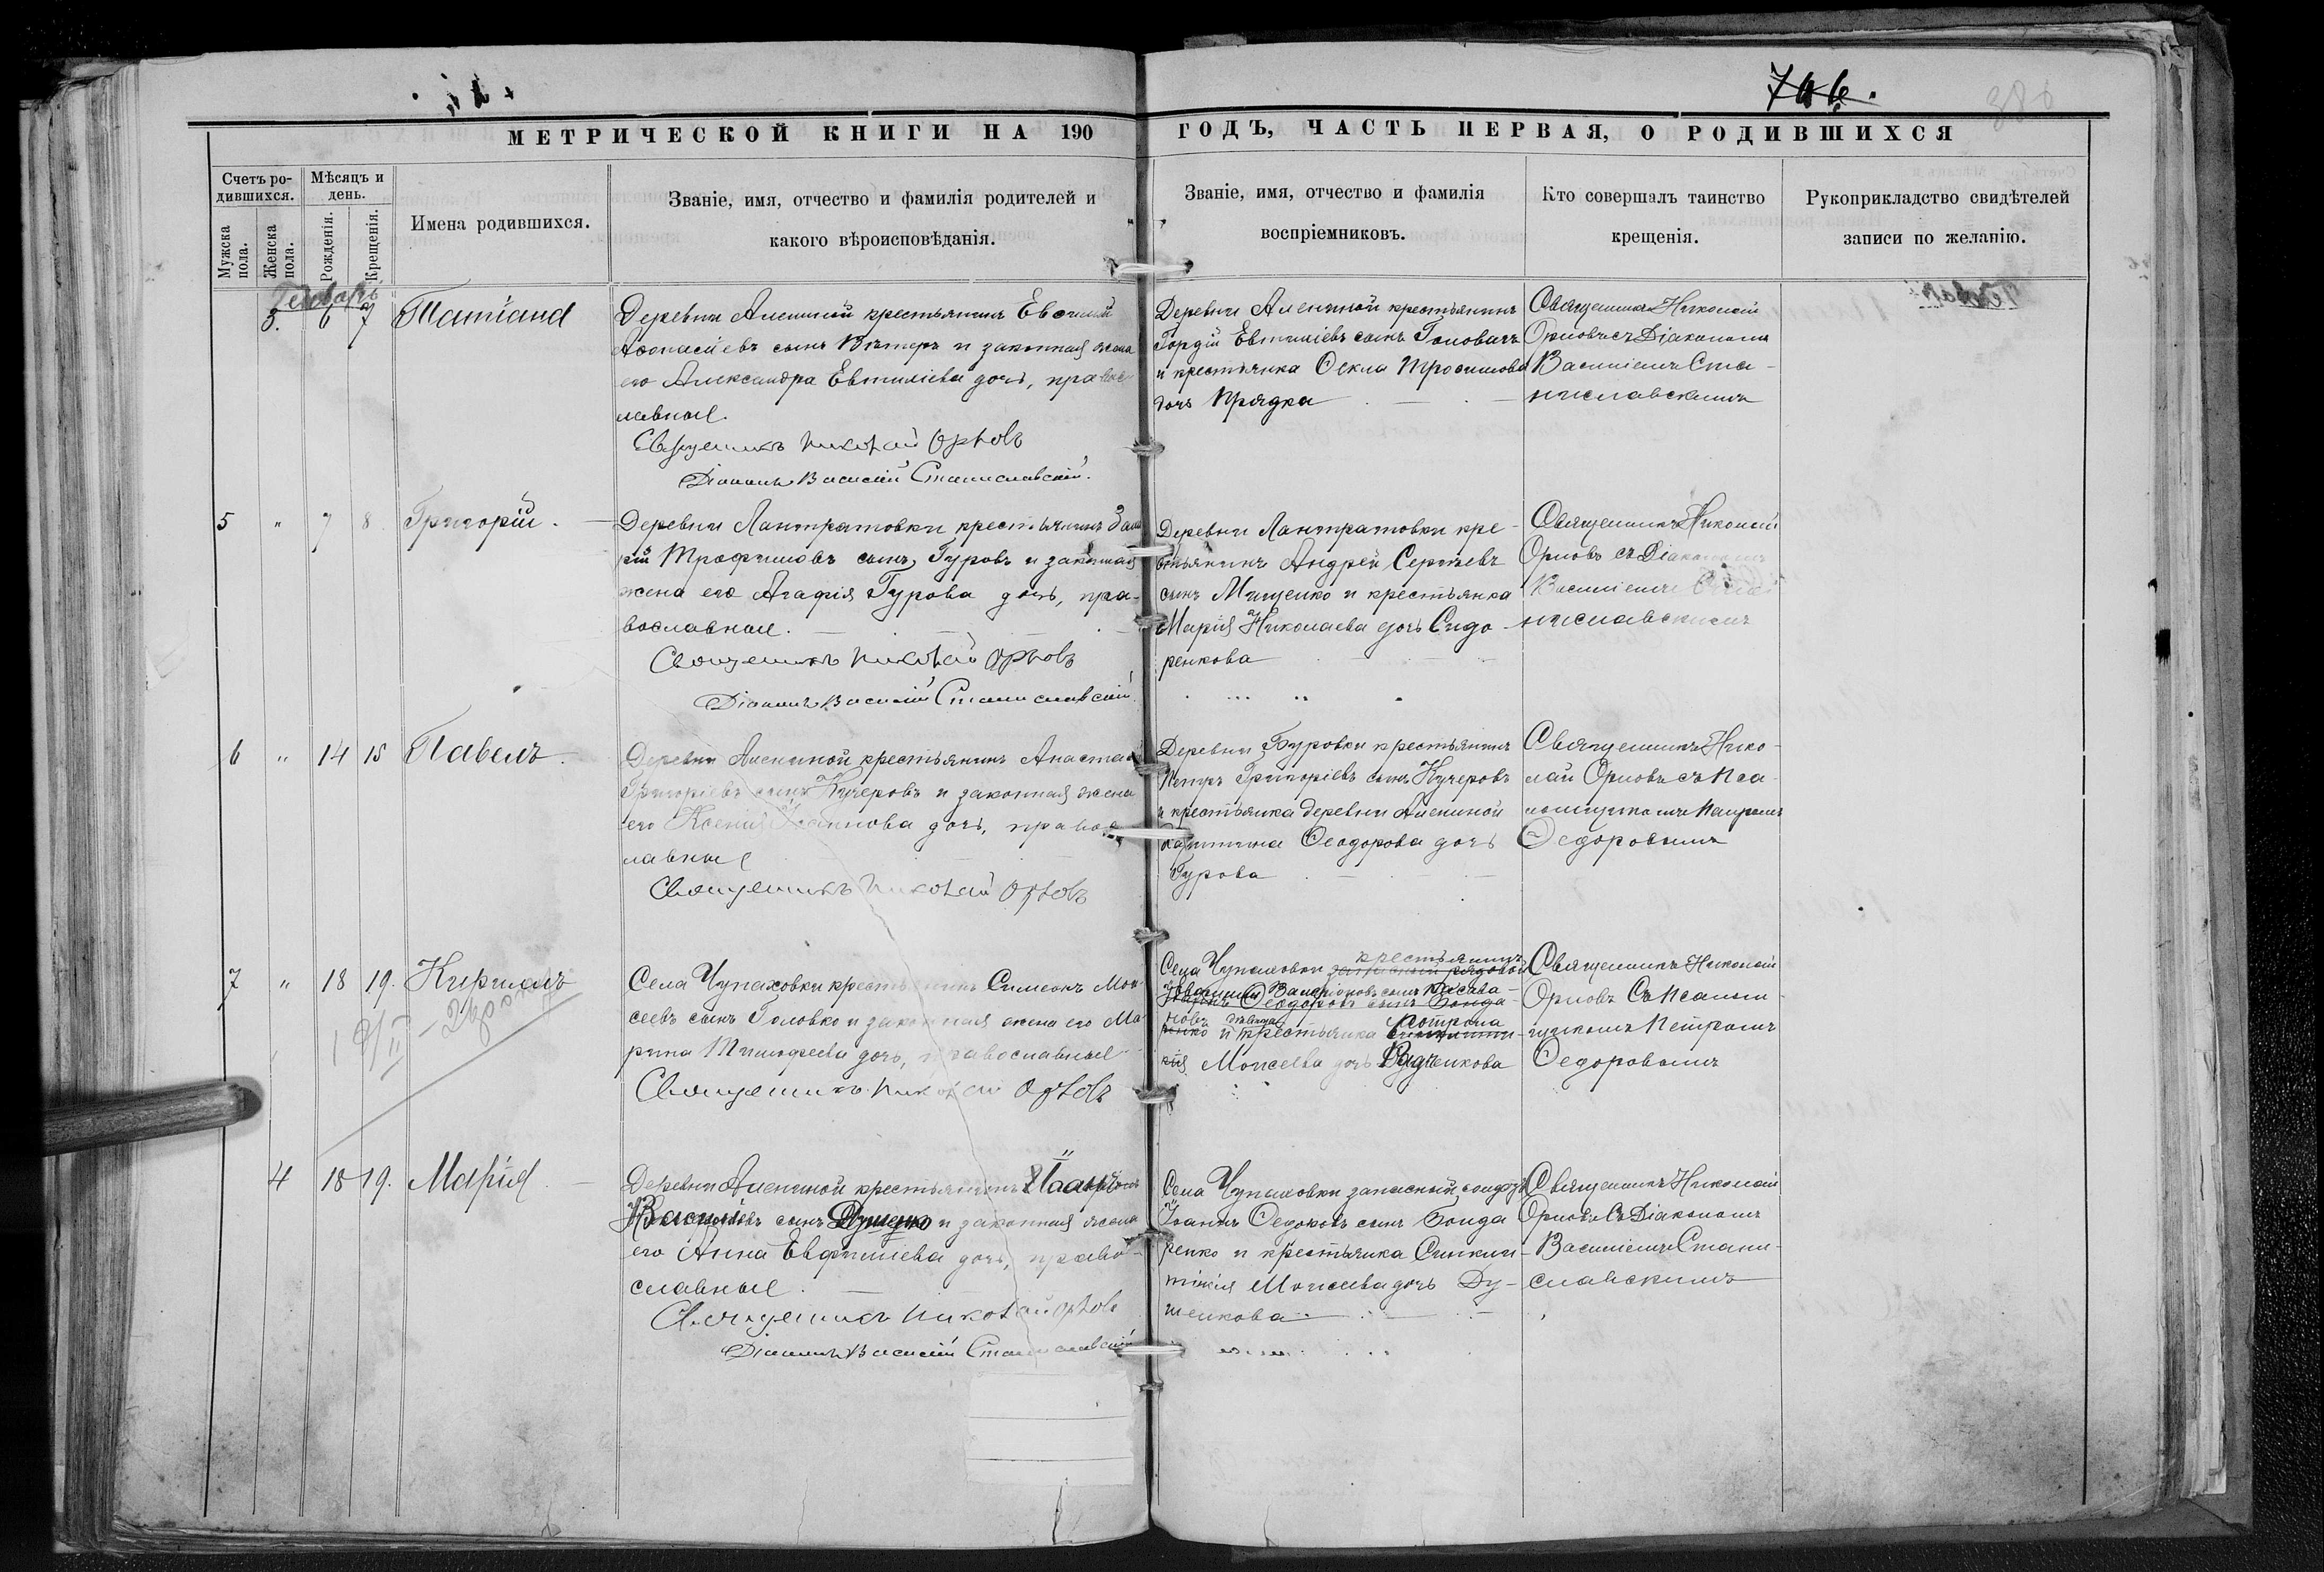 МЕТРИЧЕСКОЙ КНИГИ НА 190 ГОДЪ, ЧАСТЬ ПЕРВАЯ, О РОДИВШИХСЯ
Счетъ ро-
дившихся.
Мѣсяцъ и
день.
Мужска
пола.
Женска
пола.
Рожденія.
Крещенія.
Имена родившихся.
Званіе, имя, отчество и фамилія родителей и
какого вѣроисповѣданія.
Званіе, имя, отчество и фамилія
воспріемниковъ.
Кто совершалъ таинство
крещенія.
Рукоприкладство свидѣтелей
записи по желанію.
3. 6 7 Татіана
Деревни крестьянинъ
сынъ и законная жена
его Александра Евтихіева дочь, правос-
лавные.
Священникъ Николай Орловъ
Діаконъ Василій Станиславскій.
Деревни крестьянинъ
Гордій сынъ
и крестьянка Ѳекла Трофимова
дочь Прядка
Священникъ Николай
Орловъ съ Діакономъ
Василіемъ Ста-
ниславскимъ
5 " 7 8 Григорій.
Деревни Лантратовки крестьянинъ
Трофимовъ сынъ Гуровъ и законная
жена его Агафія Гурова дочь, пра-
вославные.
Священникъ Николай Орловъ
Діаконъ Василій Станиславскій
Деревни Лантратовки кре-
стьянинъ Андрей Сергѣевъ
сынъ Мищенко и крестьянка
Марія Николаева дочь Сидо-
ренкова
Священникъ Николай
Орловъ съ Діакономъ
Василіемъ Ста-
ниславскимъ
6 " 14 15 Павелъ.
Деревни крестьянинъ
Григоріевъ сынъ Кучеровъ и законная жена
его Ксенія Іоаннова дочь, правос-
лавные
Священникъ Николай Орловъ
Деревни Буровки крестьянинъ
Петръ Григоріевъ сынъ Кучеровъ
и крестьянка деревни
Ѳеодорова дочь
Гурова
Священникъ Нико-
лай Орловъ съ Пса-
ломщикомъ Петромъ
Ѳедоровымъ
7 " 18 19. Кириллъ
Села Чупаховки крестьянинъ Симеонъ Мои-
сеевъ сынъ Головко и законная жена его Ма-
рина Тимофеева дочь, православные
Священникъ Николай Орловъ
крестьянинъ
Села Чупаховки запасный рядовой
сынъ
Іоаннъ Ѳеодоровъ сынъ Бонда-
ренко и крестьянка
Моисеева дочь
Священникъ Николай
Орловъ Съ Псалом-
щикомъ Петромъ
Ѳедоровымъ
4 18 19. Марія
Деревни крестьянинъ
сынъ и законная жена
его Анна Евфиміева дочь, право-
славные.
Священникъ Николай Орловъ
Діаконъ Василій Станиславскій
Села Чупаховки запасный солдатъ
Іоаннъ Ѳедоровъ сынъ Бонда
ренко и крестьянка Синкли-
тикія Моисеева дочь Ду-
шенкова
Священникъ Николай
Орловъ Съ Діакономъ
Василіемъ Стани-
славскимъ